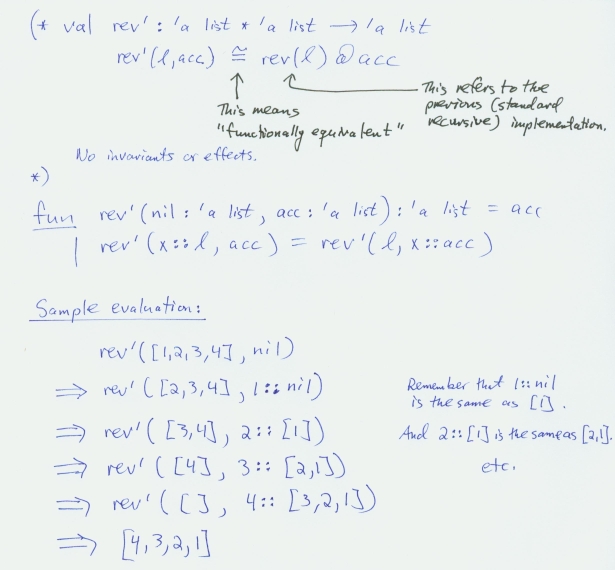 (* val rev' : 'a list * 'a list → 'a list
rev'(l,acc) ≅ rev(l) @ acc
This means
"functionally equivalent"
This refers to the
previous (standard
recursive) implementation.
No invariants or effects.
*)
fun rev'(nil : 'a list, acc : 'a list) : 'a list = acc
| rev'(x::l, acc) = rev'(l, x::acc)
Sample evaluation:
rev'([1,2,3,4], nil)
⟹ rev'([2,3,4], 1::nil)
⟹ rev'([3,4], 2::[1])
⟹ rev'([4], 3::[2,1])
⟹ rev'([], 4::[3,2,1])
⟹ [4,3,2,1]
Remember that 1::nil
is the same as [1].
And 2::[1] is the same as [2,1].
etc.